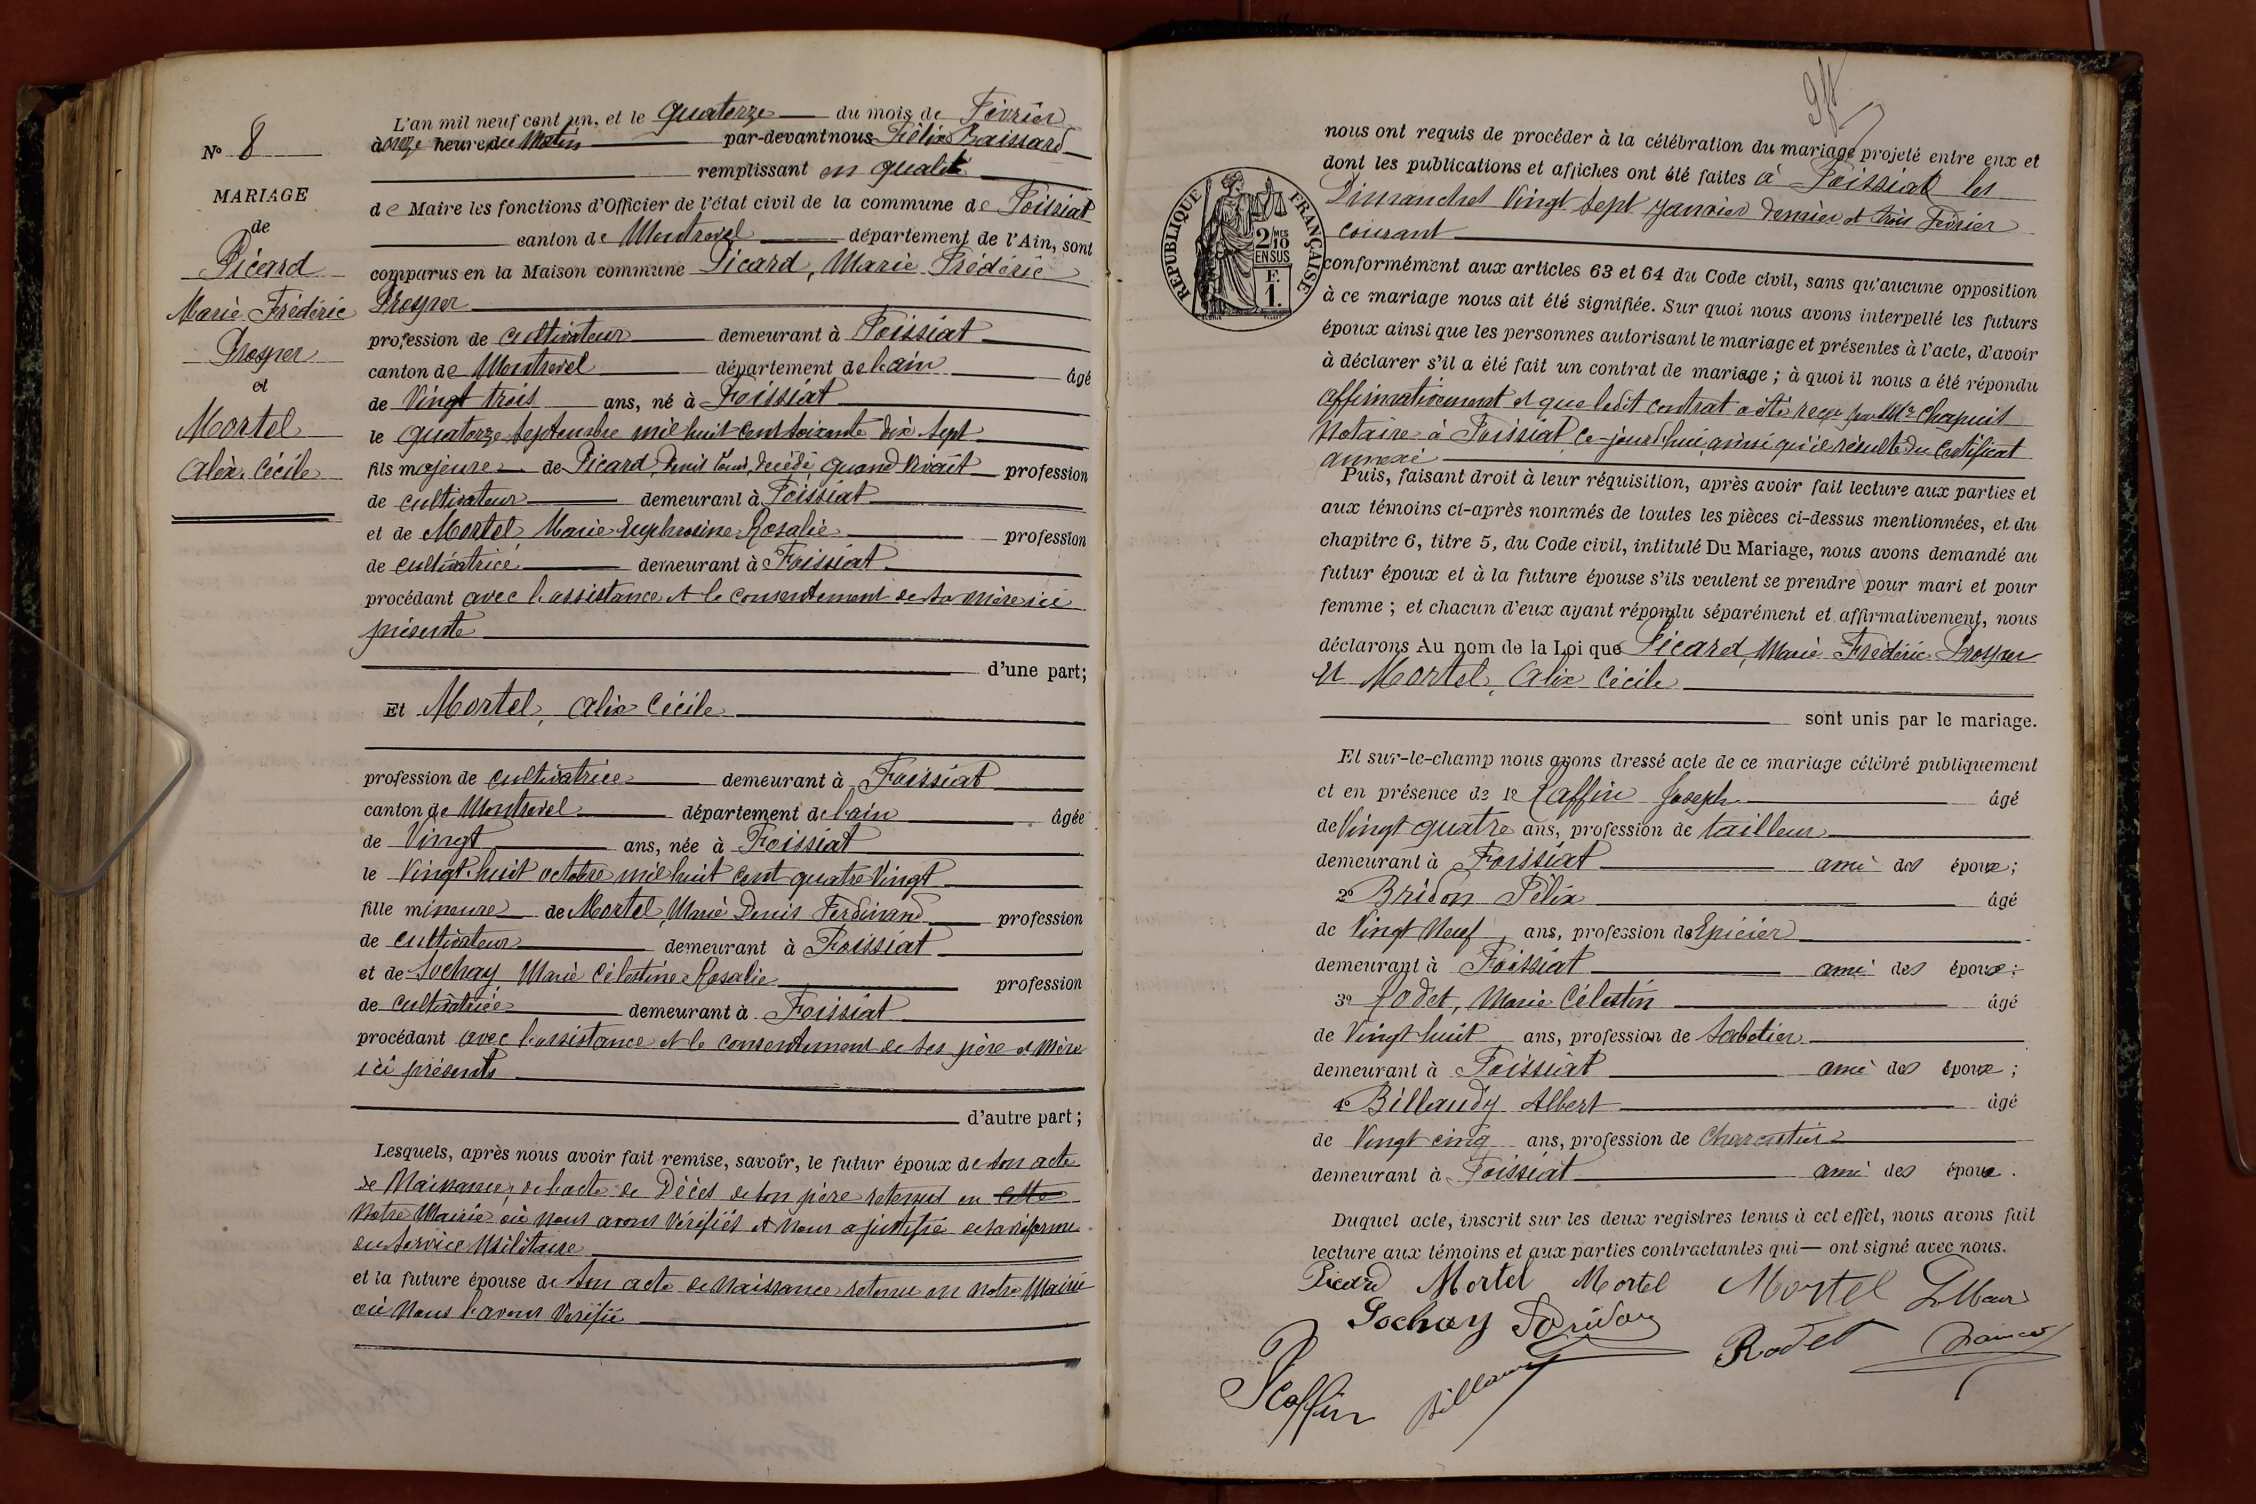 N° 8
MARIAGE
de
Picard
Marie Frédéric
Prosper
et
Mortel
Alix Cécile
L'an mil neuf cent un, et le quatorze du mois de Février
à onze heures du Matin par-devant nous Félix Baissard
remplissant en qualité
de Maire les fonctions d'Officier de l'état civil de la commune de Foissiat
canton de Montrevel département de l'Ain, sont
comparus en la Maison commune Picard, Marie Frédéric
Prosper
profession de cultivateur demeurant à Foissiat
canton de Montrevel département de l'ain âgé
de Vingt trois ans, né à Foissiat
le quatorze Septembre mil huit cent soixante dix sept
fils majeure de Picard, Denis Louis, décédé quand vivait profession
de cultivateur demeurant à Foissiat
et de Mortel, Marie Euphrosine Rosalie profession
de cultivatrice demeurant à Foissiat
procédant avec l'assistance et le consentement de sa mère ici
présente
d'une part;
Et Mortel, Alix Cécile
profession de cultivatrice demeurant à Foissiat
canton de Montrevel département de l'ain âgée
de Vingt ans, née à Foissiat
le Vingt-huit octobre mil huit cent quatre Vingt
fille mineure de Mortel, Marie Denis Ferdinand profession
de cultivateur demeurant à Foissiat
et de Sochay Marie Célestine Rosalie profession
de cultivatrice demeurant à Foissiat
procédant avec l'assistance et le consentement de ses père et Mère
ici présents
d'autre part;
Lesquels, après nous avoir fait remise, savoir, le futur époux de son acte
de Naissance, de l'acte de Décès de son père retenus en cette
Notre Mairie où Nous avons Vérifiés et Nous a justifié de sa réforme
du service Militaire
et la future épouse de son acte de Naissance retenu en Notre Mairie
où Nous l'avons Vérifié
nous ont requis de procéder à la célébration du mariage projeté entre eux et
dont les publications et affiches ont été faites à Foissiat les
Dimanches Vingt Sept Janvier dernier et trois Février
courant
RÉPUBLIQUE FRANÇAISE
2/10 MES
EN SUS
F.
1.
conformément aux articles 63 et 64 du Code civil, sans qu'aucune opposition
à ce mariage nous ait été signifiée. Sur quoi nous avons interpellé les futurs
époux ainsi que les personnes autorisant le mariage et présentes à l'acte, d'avoir
à déclarer s'il a été fait un contrat de mariage; à quoi il nous a été répondu
affirmativement et que ledit contrat a été reçu par Me Chapuis
Notaire à Foissiat, ce-jourd'hui, ainsi qu'il résulte du Certificat
annexé
Puis, faisant droit à leur réquisition, après avoir fait lecture aux parties et
aux témoins ci-après nommés de toutes les pièces ci-dessus mentionnées, et du
chapitre 6, titre 5, du Code civil, intitulé Du Mariage, nous avons demandé au
futur époux et à la future épouse s'ils veulent se prendre pour mari et pour
femme; et chacun d'eux ayant répondu séparément et affirmativement, nous
déclarons Au nom de la Loi que Picard, Marie Frédéric Prosper
Et Mortel, Alix Cécile
sont unis par le mariage.
Et sur-le-champ nous avons dressé acte de ce mariage célébré publiquement
et en présence de 1° Caffin Joseph âgé
de Vingt quatre ans, profession de tailleur
demeurant à Foissiat ami des époux;
2° Bridon Félix âgé
de Vingt Neuf ans, profession de Epicier
demeurant à Foissiat ami des époux;
3° Rodet, Marie Célestin âgé
de Vingt huit ans, profession de Sabotier
demeurant à Foissiat ami des époux;
4° Billaudy Albert âgé
de Vingt cinq ans, profession de Charcutier
demeurant à Foissiat ami des époux.
Duquel acte, inscrit sur les deux registres tenus à cet effet, nous avons fait
lecture aux témoins et aux parties contractantes qui ont signé avec nous.
Picard Mortel Mortel Mortel
Sochay Bridon
Rodet
Billaudy